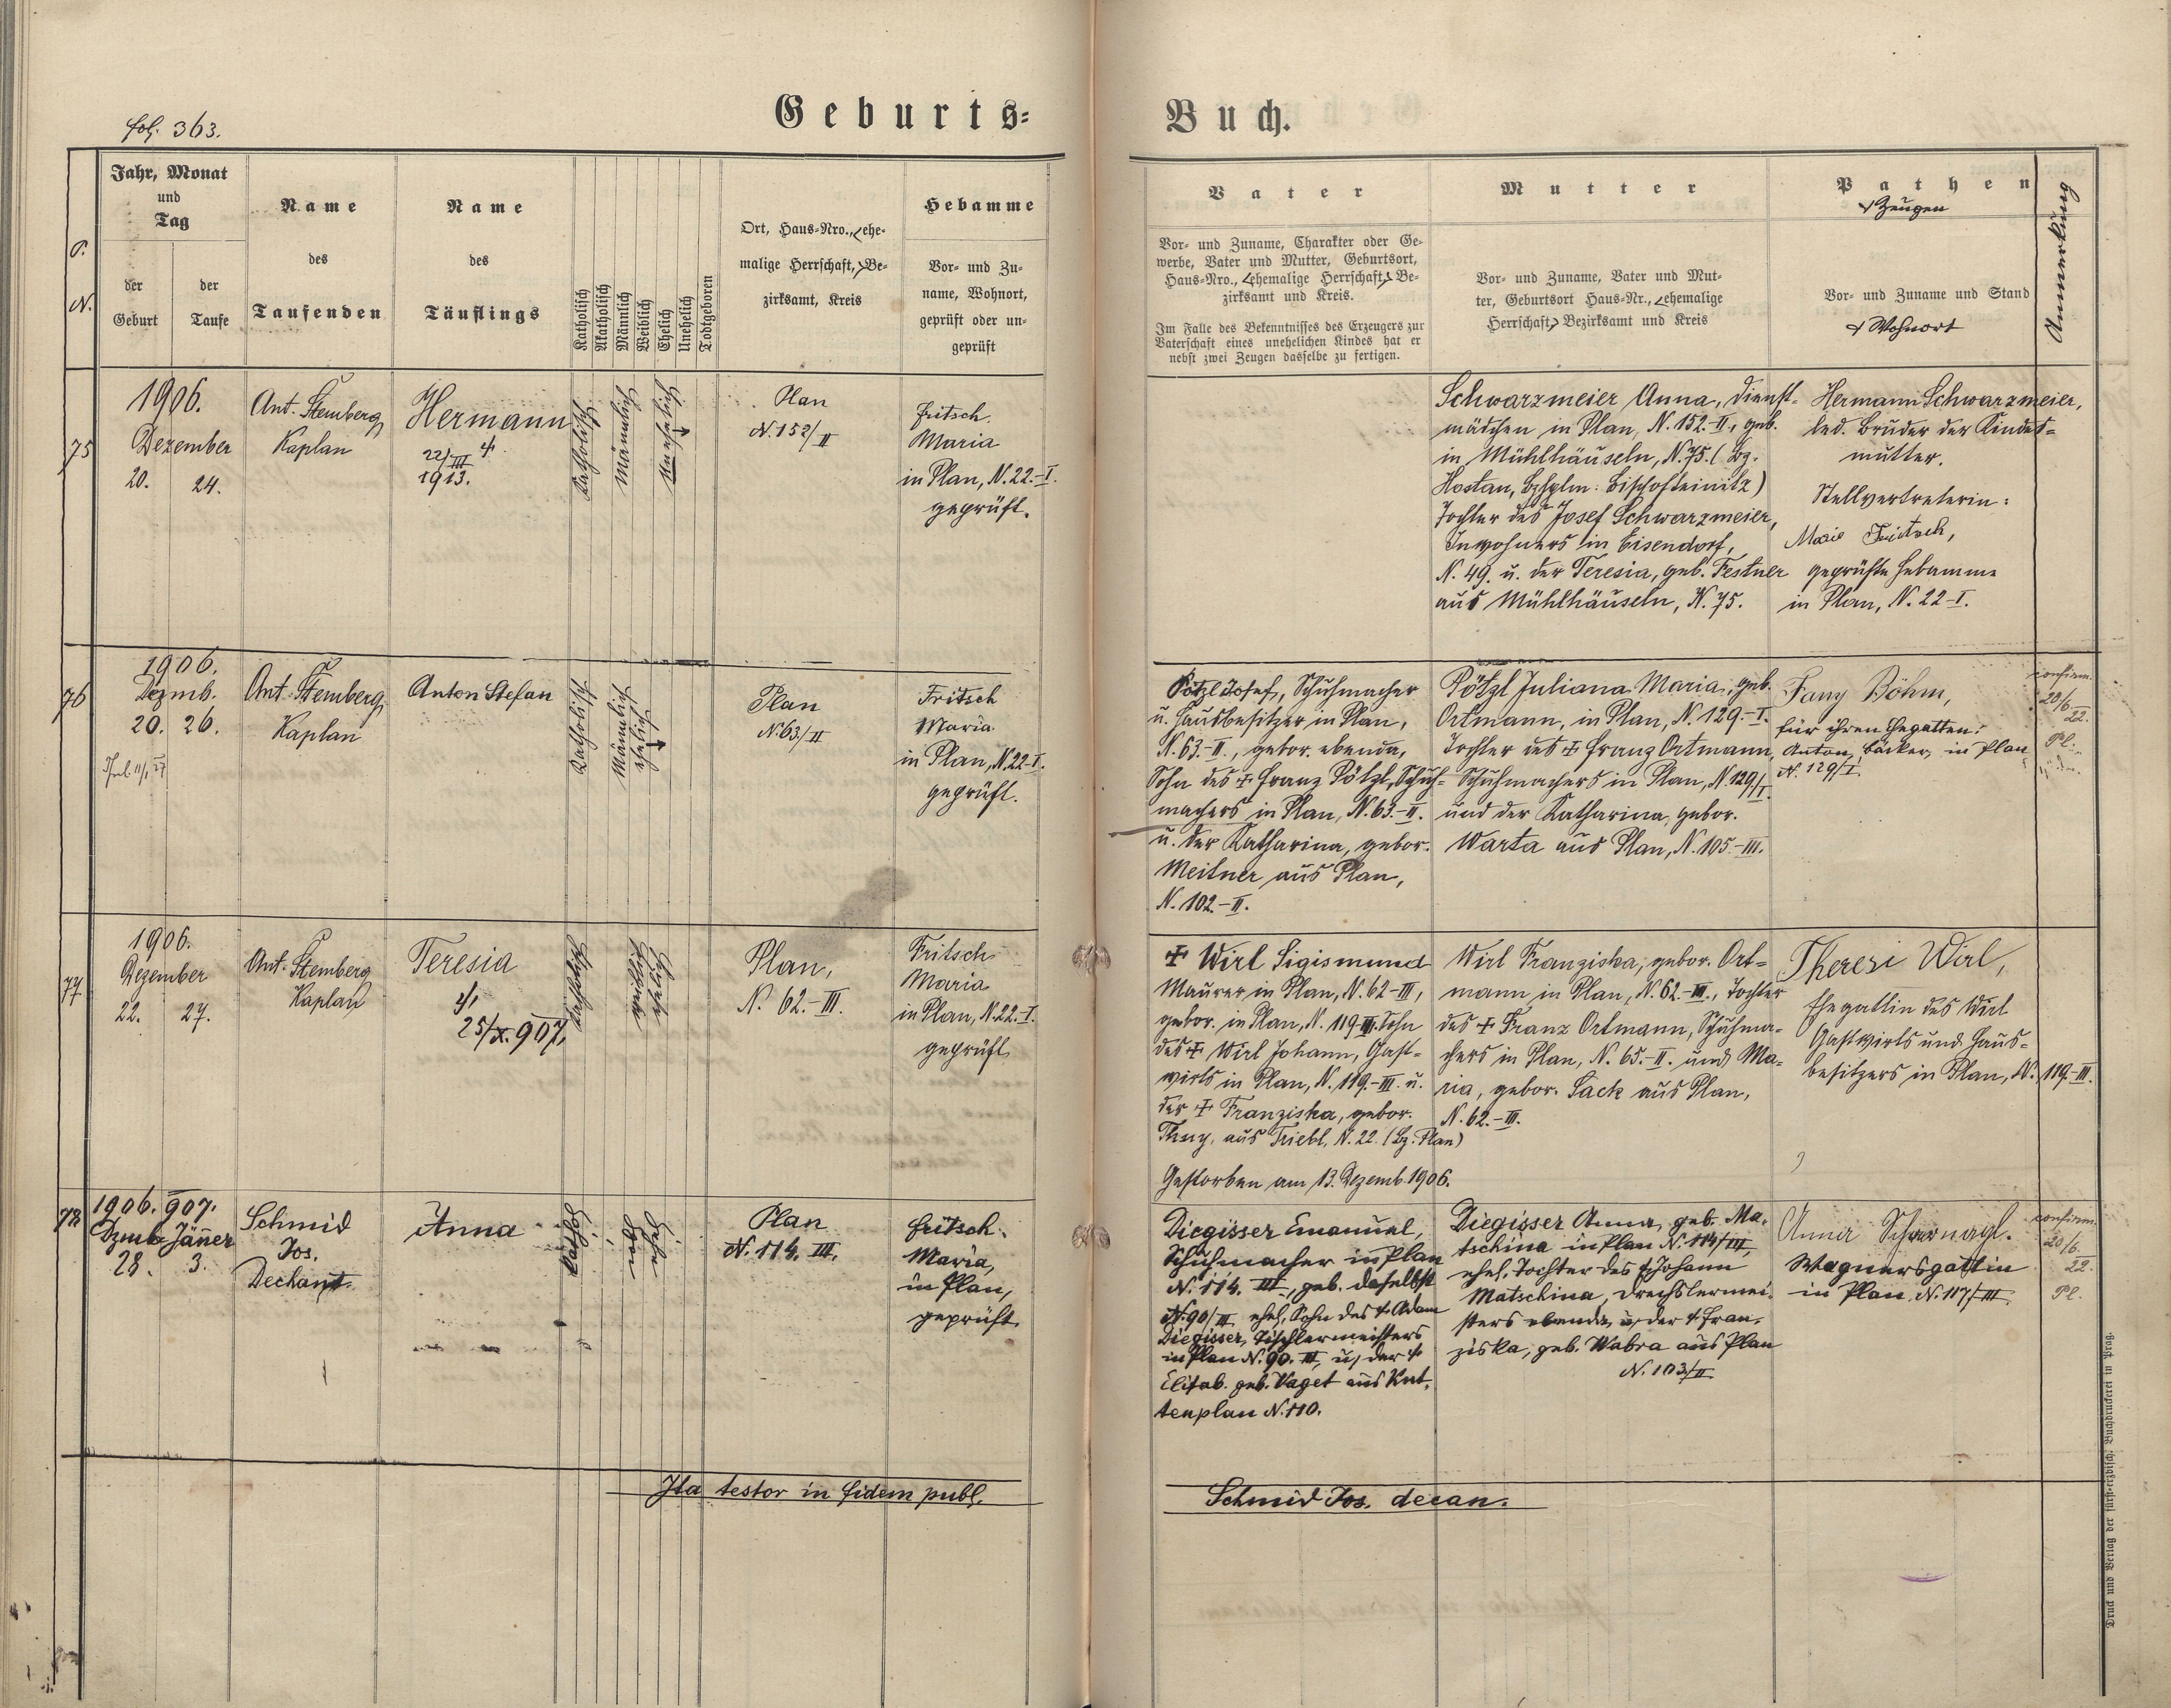 fol. 363.
Geburts-
Buch.
P. N.
Jahr, Monat
und
Tag
der
Geburt
der
Taufe
Name
des
Taufenden
Name
des
Täuflings
Katholisch
Akatholisch
Männlich
Weiblich
Ehelich
Unehelich
Todtgeboren
Ort, Haus-Nro., ehe-
malige Herrschaft, Be-
zirksamt, Kreis
Hebamme
Vor- und Zu-
name, Wohnort,
geprüft oder un-
geprüft
Vater
Vor- und Zuname, Charakter oder Ge-
werbe, Vater und Mutter, Geburtsort,
Haus-Nro., ehemalige Herrschaft, Be-
zirksamt und Kreis.
Im Falle des Bekenntnisses des Erzeugers zur
Vaterschaft eines unehelichen Kindes hat er
nebst zwei Zeugen dasselbe zu fertigen.
Mutter
Vor- und Zuname, Vater und Mut-
ter, Geburtsort Haus-Nr., ehemalige
Herrschaft, Bezirksamt und Kreis
Pathen
Zeugen
Vor- und Zuname und Stand
Wohnort
Anmerkung
75
1906.
Dezember
20. 24.
Ant. Stemberg
Kaplan
Hermann
22/III
1913.
Katholisch
Männlich
Unehelich
Plan
N. 152/II
Fritsch
Maria
in Plan, N. 22.-I.
geprüft.
Schwarzmeier Anna, Dienst-
mädchen in Plan, N. 152.-II., geb.
in Mühlhäuseln, N. 75. (Bz.
Hostau, Bzhptm: Bischofteinitz)
Tochter des Josef Schwarzmeier,
Inwohners in Eisendorf,
N. 49. u. der Teresia, geb. Festner
aus Mühlhäuseln, N. 75.
Hermann Schwarzmeier,
led. Bruder der Kindes-
mutter.
Stellvertreterin:
Marie Fritsch,
geprüfte Hebamme
in Plan, N. 22-I.
76
1906.
Dezmb.
20. 26.
Ant. Stemberg
Kaplan
Anton Stefan
Katholisch
Männlich
ehelich
Plan
N. 63/II
Fritsch
Maria
in Plan, N. 22-I.
geprüft.
Pötzl Josef, Schuhmacher
u. Hausbesitzer in Plan,
N. 63.-II., gebor. ebenda,
Sohn des ✝ Franz Pötzl, Schuh-
machers in Plan, N. 63.-II.
u. der Katharina, gebor.
Meitner aus Plan,
N. 102.-II.
Pötzl Juliana Maria, geb.
Ortmann, in Plan, N. 129.-I.
Tochter des ✝ Franz Ortmann,
Schuhmachers in Plan, N. 129/I.
und der Katharina, gebor.
Warta aus Plan, N. 105-III.
Fany Böhm,
für ihren Ehegatten:
Anton, Bäcker, in Plan
N. 129/I.
confirm.
20/6
22.
Pl.
77
1906.
Dezember
22. 27.
Ant. Stemberg
Kaplan
Teresia
25/X. 907.
Katholisch
weiblich
ehelich
Plan,
N. 62.-III.
Fritsch
Maria
in Plan, N. 22.-I.
geprüft
✝ Wirl Sigismund
Maurer in Plan, N. 62-III,
gebor. in Plan, N. 119-III. Sohn
des ✝ Wirl Johann, Gast-
wirts in Plan, N. 119.-III. u.
der ✝ Franziska, gebor.
Thuy, aus Triebl, N. 22. (Bz. Plan)
Gestorben am 13. Dezemb. 1906.
Wirl Franziska, gebor. Ort-
mann in Plan, N. 62.-III., Tochter
des ✝ Franz Ortmann, Schuhma-
chers in Plan, N. 65.-II. und Ma-
ria, gebor. Sack aus Plan,
N. 62.-III.
Theresi Wirl,
Ehegattin des Wirl
Gastwirts und Haus-
besitzers in Plan, N. 119.-III.
78
1906. 907.
Dzmb. Jänner
28. 3.
Schmid
Jos.
Dechant.
Anna
Kathol.
Plan
N. 114. III.
Fritsch
Maria,
in Plan,
geprüft
Diegisser Emanuel,
Schuhmacher in Plan
N. 114. III., geb. daselbst
N. 90/III ehel. Sohn des ✝ Adam
Diegisser, Tischlermeisters
in Plan N. 90. III, u. der ✝
Elisab. geb. Vaget aus Kut-
tenplan N. 110.
Diegisser Anna, geb. Ma-
tschina in Plan N. 114/III,
ehel. Tochter des ✝ Johann
Matschina, Drechslermei-
sters ebenda u. der ✝ Fran-
ziska, geb. Wabra aus Plan
N. 103/II
Anna Scharnagl.
Wagnersgattin
in Plan N. 117/III.
confirm.
20/6.
22.
Pl.
Ita testor in fidem publ.
Schmid Jos. decan.
Druck und Verlag der fürst-erzbisch. Buchdruckerei in Prag.